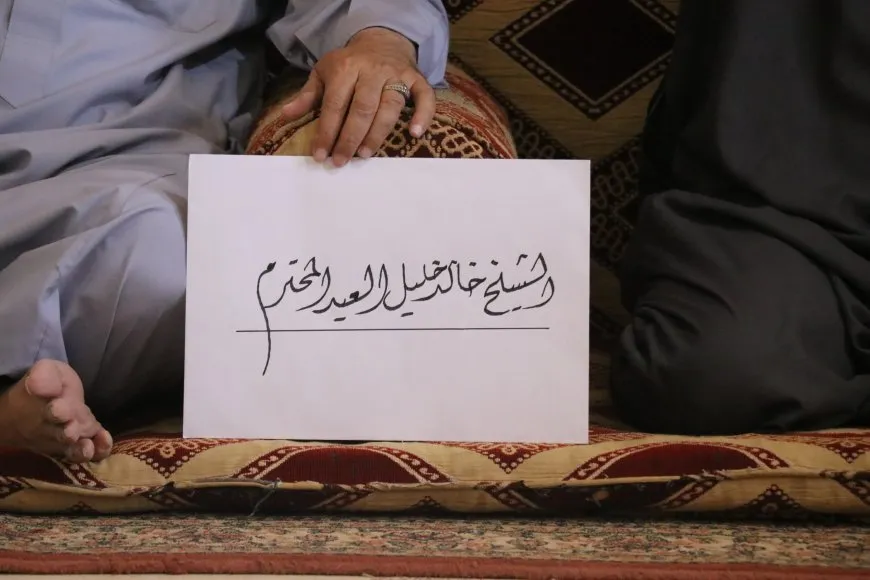 الشيخ خالد خليل العيد المحترم